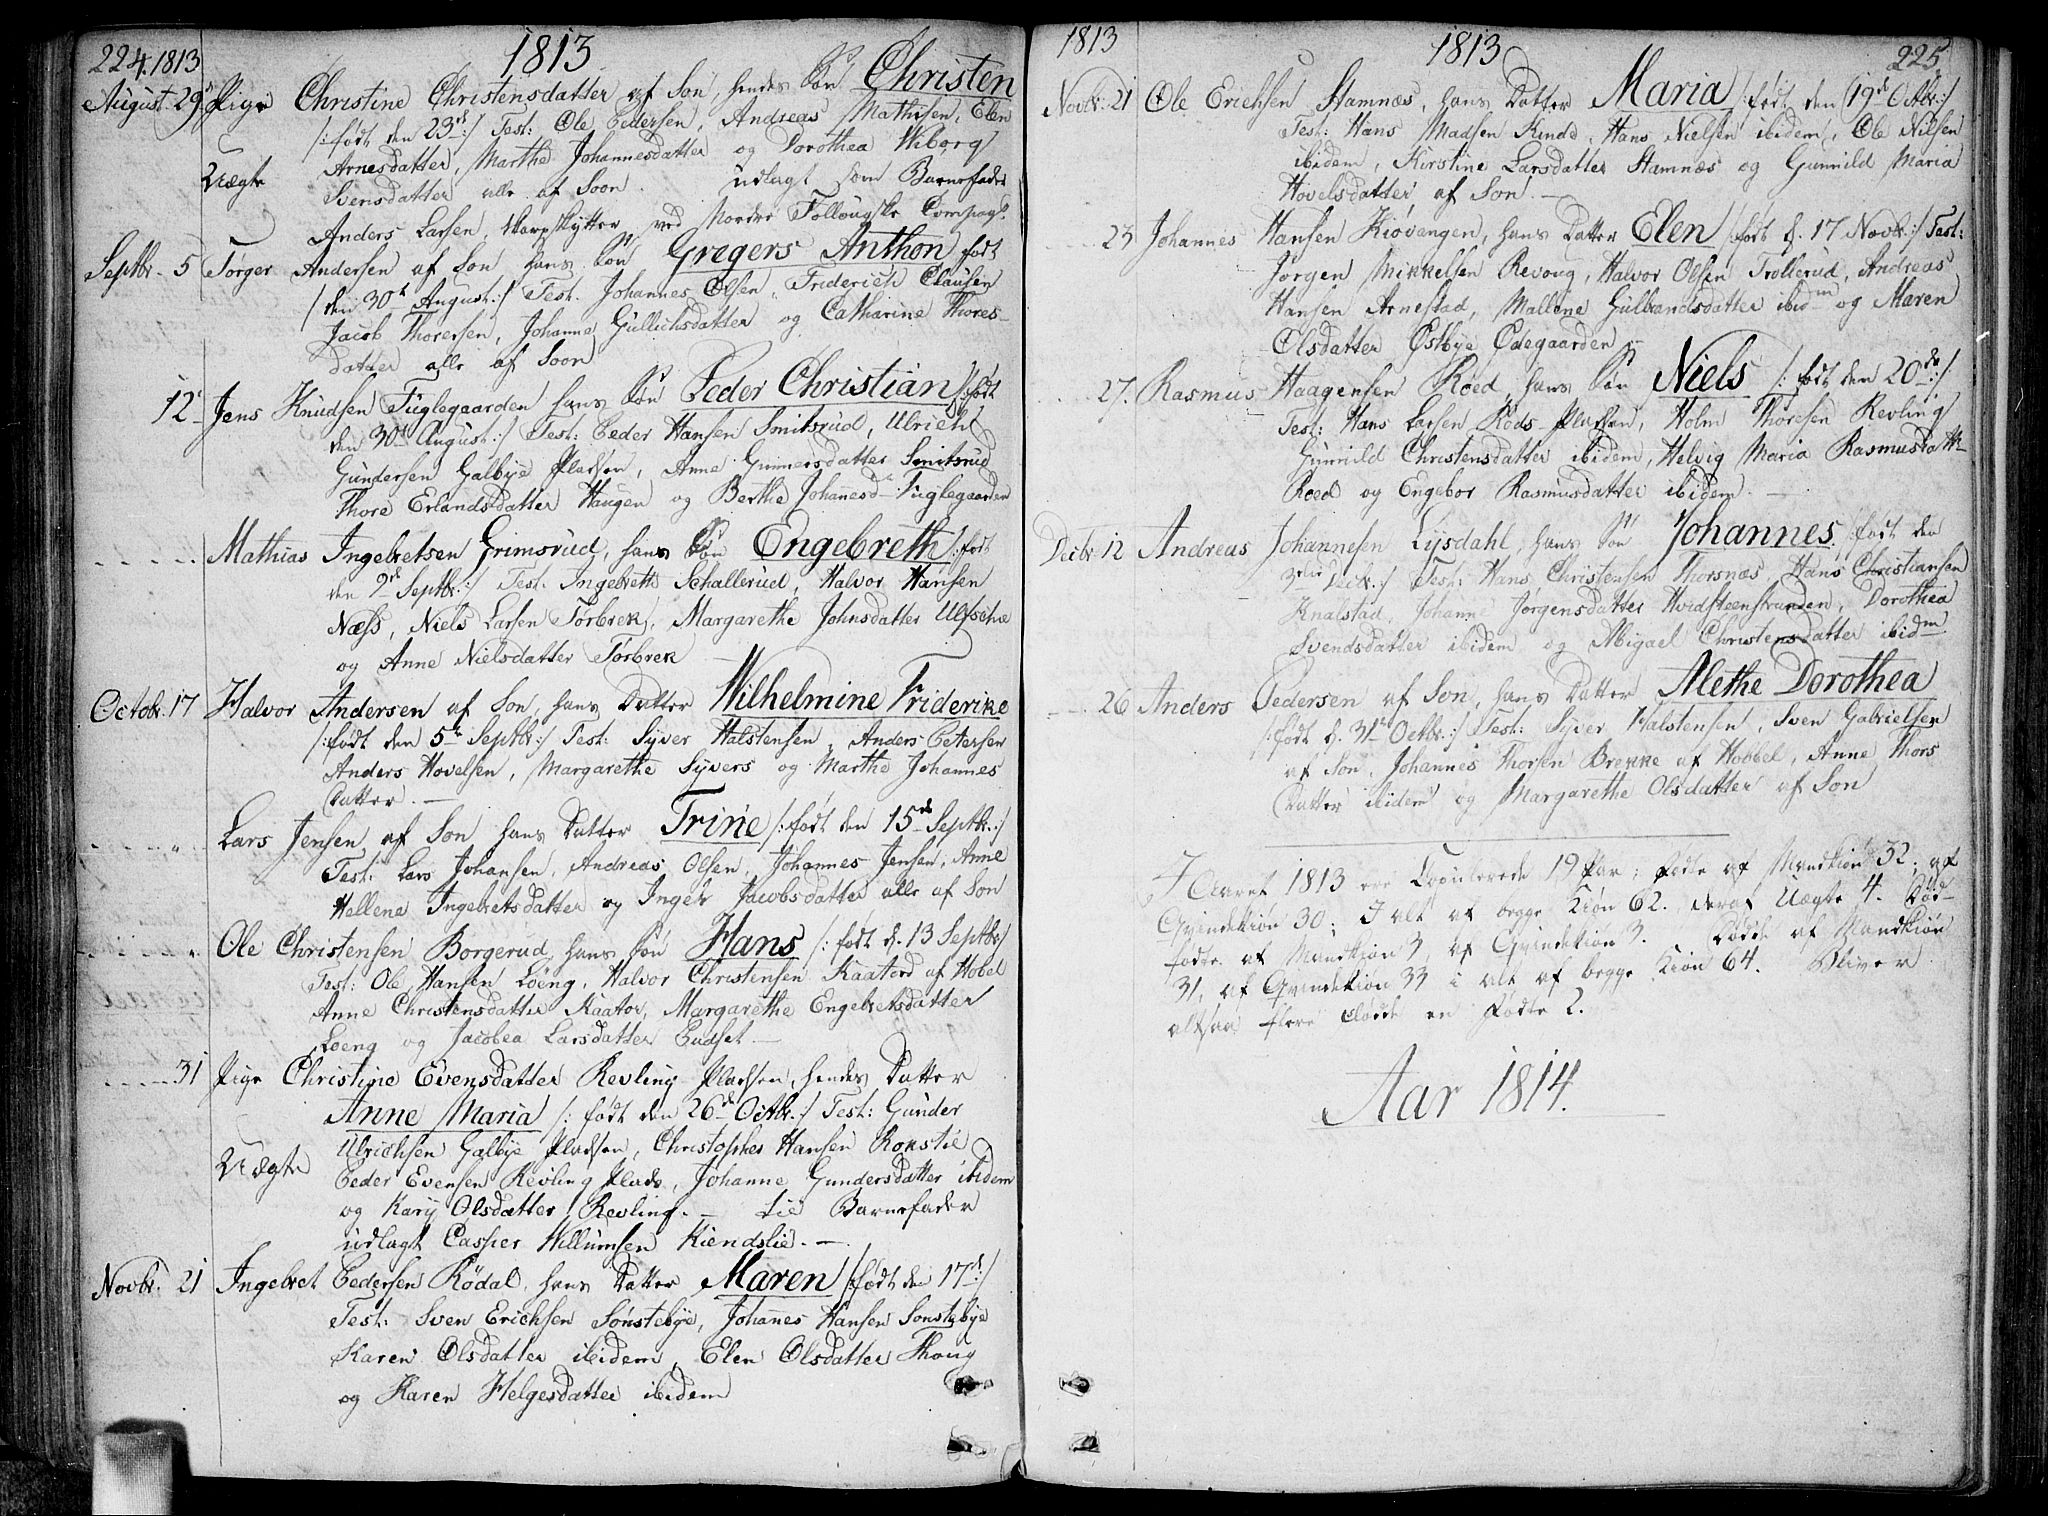 224. 1813
1813
August. 29 Pige Christine Christensdatter af Son, hendes Søn Christen
/: født den 23de :/ Test: Ole Pedersen, Andreas Mathisen, Elen
Arnesdatter, Marthe Johannesdatter og Dorothea Wiborg
Uægte Svensdatter alle af Soon. udlagt som Barnefader
Anders Larsen, skarpskytter ved Nordre Follougske Compag:
Septbr. 5 Torger Andersen af Son hans Søn Gregers Anthon født
/ den 30te August :/ Test. Johannes Olsen, Friderich Clausen
Jacob Thorersen, Johanne Gullichsdatter og Catharine Thores-
datter alle af Soon
12 Jens Knudsen Fuglegaarden hans Søn Peder Christian /: født
den 30te August :/ Test: Peder Hansen Smitsrud, Ulrich
Gundersen Galbye Pladsen, Anne Gunnersdatter Smitsrud
Thore Erlandsdatter Haugen og Berthe Johannesd: Fuglegaarden
Mathias Ingebretsen Grimsrud, hans Søn Engebreth /: født
den 9de Septbr :/ Test. Ingebreth Schallerud, Halvor Hansen
Næss, Niels Larsen Torbrek, Margarethe Johnsdatter
og Anne Nielsdatter Torbrek
Octobr. 17 Halvor Andersen af Son, hans Datter Wilhelmine Friderike
/: født den 5te Septbr :/ Test: Syver Halstensen, Anders Petersen
Anders Hovelsen, Margarethe Syvers og Marthe Johannes
Datter. —
„ Lars Jensen af Son hans Datter Trine /: født den 15de Septbr. :/
Test: Lars Johansen, Andreas Olsen, Johannes Jensen, Anne
Hellene Ingebretsdatter og Ingebr Jacobsdatter alle af Son
„ Ole Christensen Borgerud, hans Søn Hans /: født d. 13 Septbr /
Test: Ole Hansen Loeng, Halvor Christensen Kaatord af Hobel
Anne Christensdatter Kaator, Margarethe Engebretsdatter
Loeng og Jacobea Larsdatter Gudset —
31 Pige Christine Evensdatter Revling Pladsen, hendes Datter
Anne Maria /: født den 26de Octbr. :/ Test: Gunder
Ulrichsen Galbye Pladsen, Christopher Hansen Rokstie
Uægte Peder Evensen Revling Plads, Johanne Gundersdatter ibidem
og Kary Olsdatter Revling. — til Barnefader
udlagt Casper Willumsen Kiendslie. —
Novbr. 21 Ingebret Pedersen Rödal, hans Datter Maren / født den 17de :/
Test: Sven Erichsen Sönstebye, Johannes Hansen Sonstebye
Karen Olsdatter ibidem, Elen Olsdatter Thoug
og Karen Helgesdatter ibidem
1813
1813
225
Novbr. 21 Ole Erichsen Stamnæs, hans Datter Maria /: født den 19de Octbr :/
Test: Hans Madsen Kinde, Hans Nielsen ibidem, Ole Nilsen
ibidem, Kirstine Larsdatter Stamnæs og Gunnild Maria
Hovelsdatter af Son. —
23 Johannes Hansen Kiövangen, hans Datter Elen /: født d. 17 Novbr :/ Test:
Jörgen Mikkelsen Revoug, Halvor Olsen Trollerud, Andreas
Hansen Arnestad, Mallene Gulbrandsdatter ibidm og Maren
Olsdatter Østbye Ødegaarden —
27. Rasmus Haagensen Roed, hans Søn Niels /: født den 20de :/
Test: Hans Larsen Röds-Pladsen, Holm Thoresen Revling
Gunnild Christensdatter ibidem, Helvig Maria Rasmusdatt
Roed og Engebor Rasmusdatter ibidem. —
Decbr. 12 Andreas Johannesen Lysdahl, hans Søn Johannes, /: født den
3die Decbr. :/ Test: Hans Christensen Thorsnæs, Hans Christiansen
Knalstad, Johanne Jörgensdatter Hvidsteenstranden, Dorothea
Svendsdatter ibidem og Abigael Christensdatter ibidm
26 Anders Pedersen af Son, hans Datter Alethe Dorothea
/: født d. 31te Octbr. :/ Test: Syver Halstensen, Sven Gabrielsen
af Son, Johannes Thorsen Brekke af Hobbel, Anne Thors
Datter ibidem og Margarethe Olsdatter af Son
I Aaret 1813 ere Copulerede 19 Par; födte af Mandkiön 32; af
Qvindekiön 30; I alt af begge Kiön 62. deraf Uægte 4. Död-
födte af Mandkiön 3, af Qvindekiön 3. Dödde af Mandkiön
31, af Qvindekiön 33 i alt af begge Kiön 64. Bliver
altsaa flere dödde en födte 2.
Aar 1814.